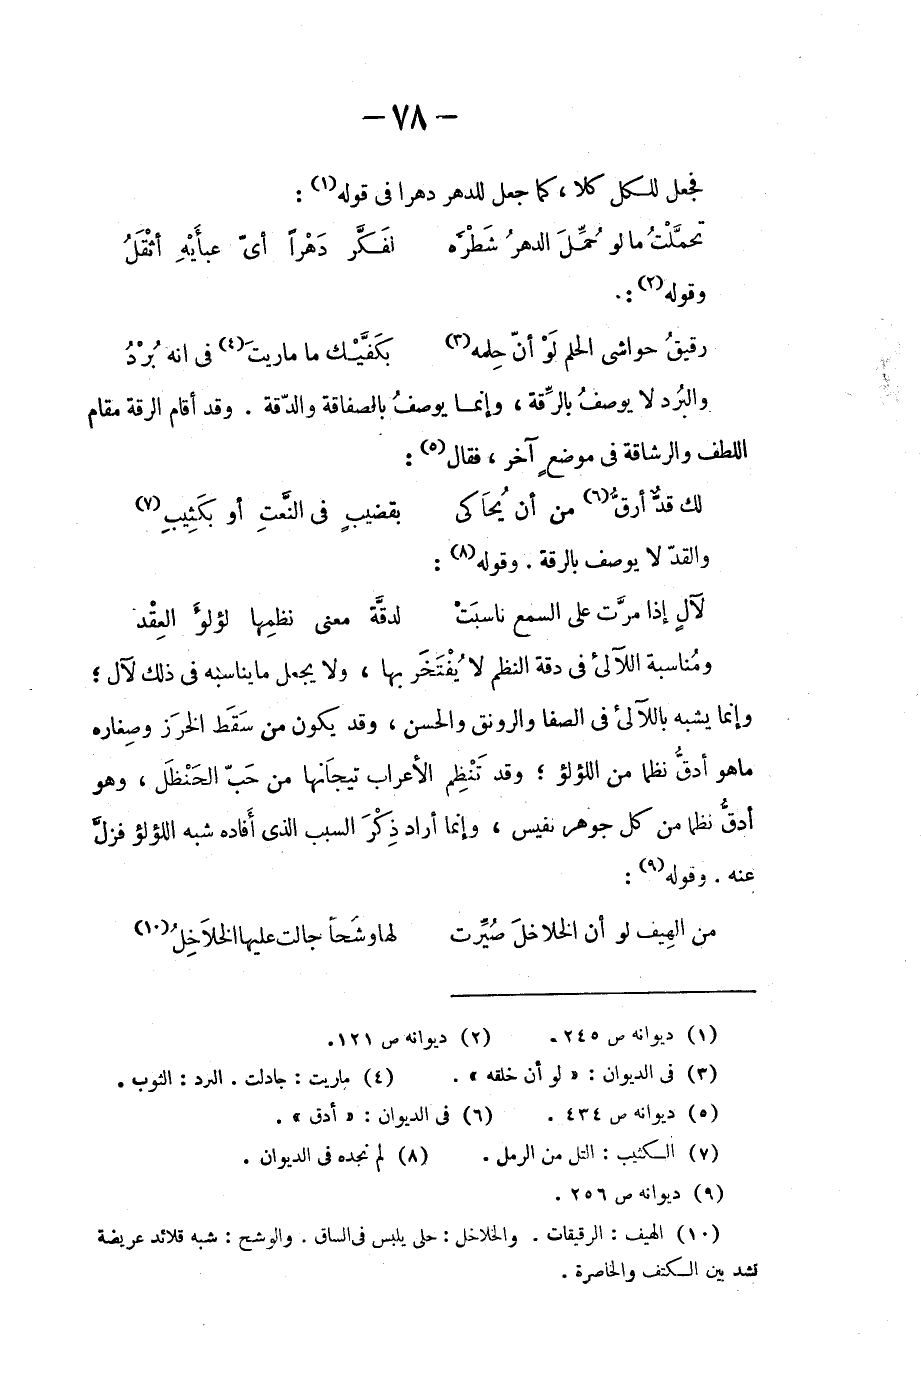 — ٧٨ —
فجعل للكل كلا ، كما جعل للدهر دهرا فى قوله(١) :
تحمَّلْتُ ما لو حُمِّلَ الدهرُ شَطْرَه لفَكَّر دَهْراً أىّ عبأَيْهِ أثْقَلُ
وقوله(٢) :.
رقيقُ حواشى الحلم لَوْ أنّ حِلمه(٣) بكَفَّيْك ما ماريتَ(٤) فى انه بُرْدُ
والبُرد لا يوصفُ بالرِّقة ، وإنما يوصفُ بالصفاقة والدّقة . وقد أقام الرقة مقام
اللطف والرشاقة فى موضعٍ آخر ، فقال(٥) :
لك قدٌّ أرقُّ(٦) من أن يُحاَكى بقضيبٍ فى النَّعتِ أو بكَثِيبِ(٧)
والقدّ لا يوصف بالرقة . وقوله(٨) :
لَآلٍ إذا مرَّت على السمع ناسبَتْ لدقَّة معنى نظمِها لؤلؤَ العِقْد
ومُناسبة اللآلئ فى دقة النظم لا يُفْتَخَر بها ، ولا يجعل مايناسبه فى ذلك لآل ؛
وإنما يشبه باللآلئ فى الصفا والرونق والحسن ، وقد يكون من سَقَط الخرَز وصِغاره
ماهو أدقُّ نظما من اللؤلؤ ؛ وقد تَنْظِم الأعراب تيجاَنها من حَبّ الحَنْظَل ، وهو
أدقُّ نظما من كل جوهر نفيس ، وإنما أراد ذِكْرَ السبب الذى أَفاده شبه اللؤلؤ فزلَّ
عنه . وقوله(٩) :
من الهِيف لو أن الخلاخلَ صُيِّرت لها وشَحاً جالت عليها الخلاَخِلُ(١٠)
(١) ديوانه ص ٢٤٥ . (٢) ديوانه ص ١٢١.
(٣) فى الديوان : « لو أن خلقه » . (٤) ماريت : جادلت . البرد : الثوب .
(٥) ديوانه ص ٤٣٤ . (٦) فى الديوان : « أدق » .
(٧) الكثيب : التل من الرمل . (٨) لم نجده فى الديوان .
(٩) ديوانه ص ٢٥٦ .
(١٠) الهيف : الرقيقات . والخلاخل : حلى يلبس فى الساق . والوشح : شبه قلائد عريضة
تشد بين الكتف والخاصرة .